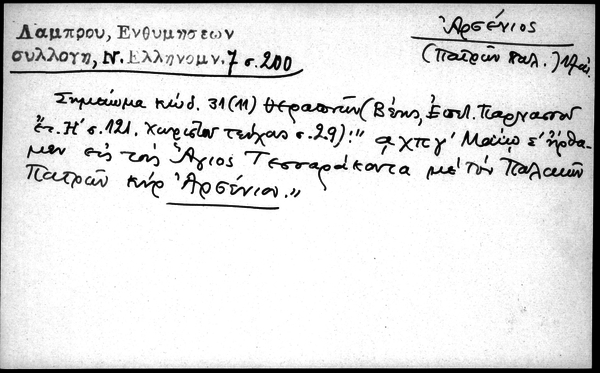 Λαμπρου, Ενθυμησεων
συλλογη, Ν. Ελληνομν. 7 σ. 200
Ἀρσένιος
(Πατρῶν Παλ.)
Σημείωμα κώδ. 31(11) Θεραπνῶν (Βέης, Ἐπετ. Παρνασσοῦ
ἔτ. Η' σ. 121, χωριστὸν τεύχος σ. 29): " ͵αχπγ' Μαΐῳ ε' ἤρθα-
μεν εἰς τοὺς Ἅγιος Τεσσαράκοντα μὲ τὸν Παλαιῶν
Πατρῶν κὺρ Ἀρσένιον."